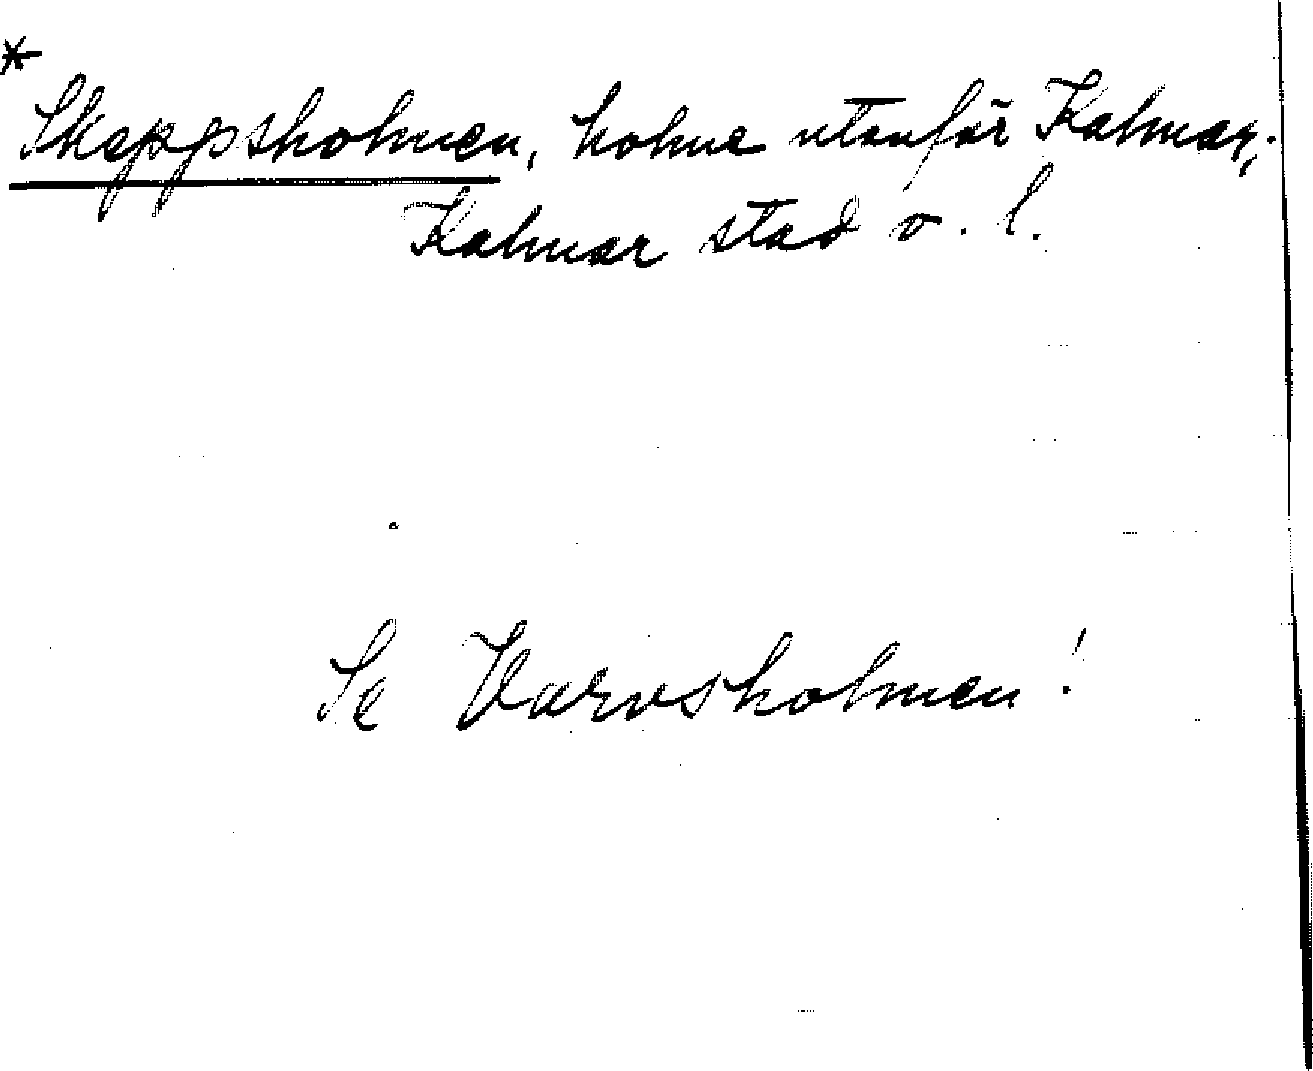 *
Skeppsholmen, holme utanför Kalmar,
Kalmar stad o. l.
Se Varvsholmen!